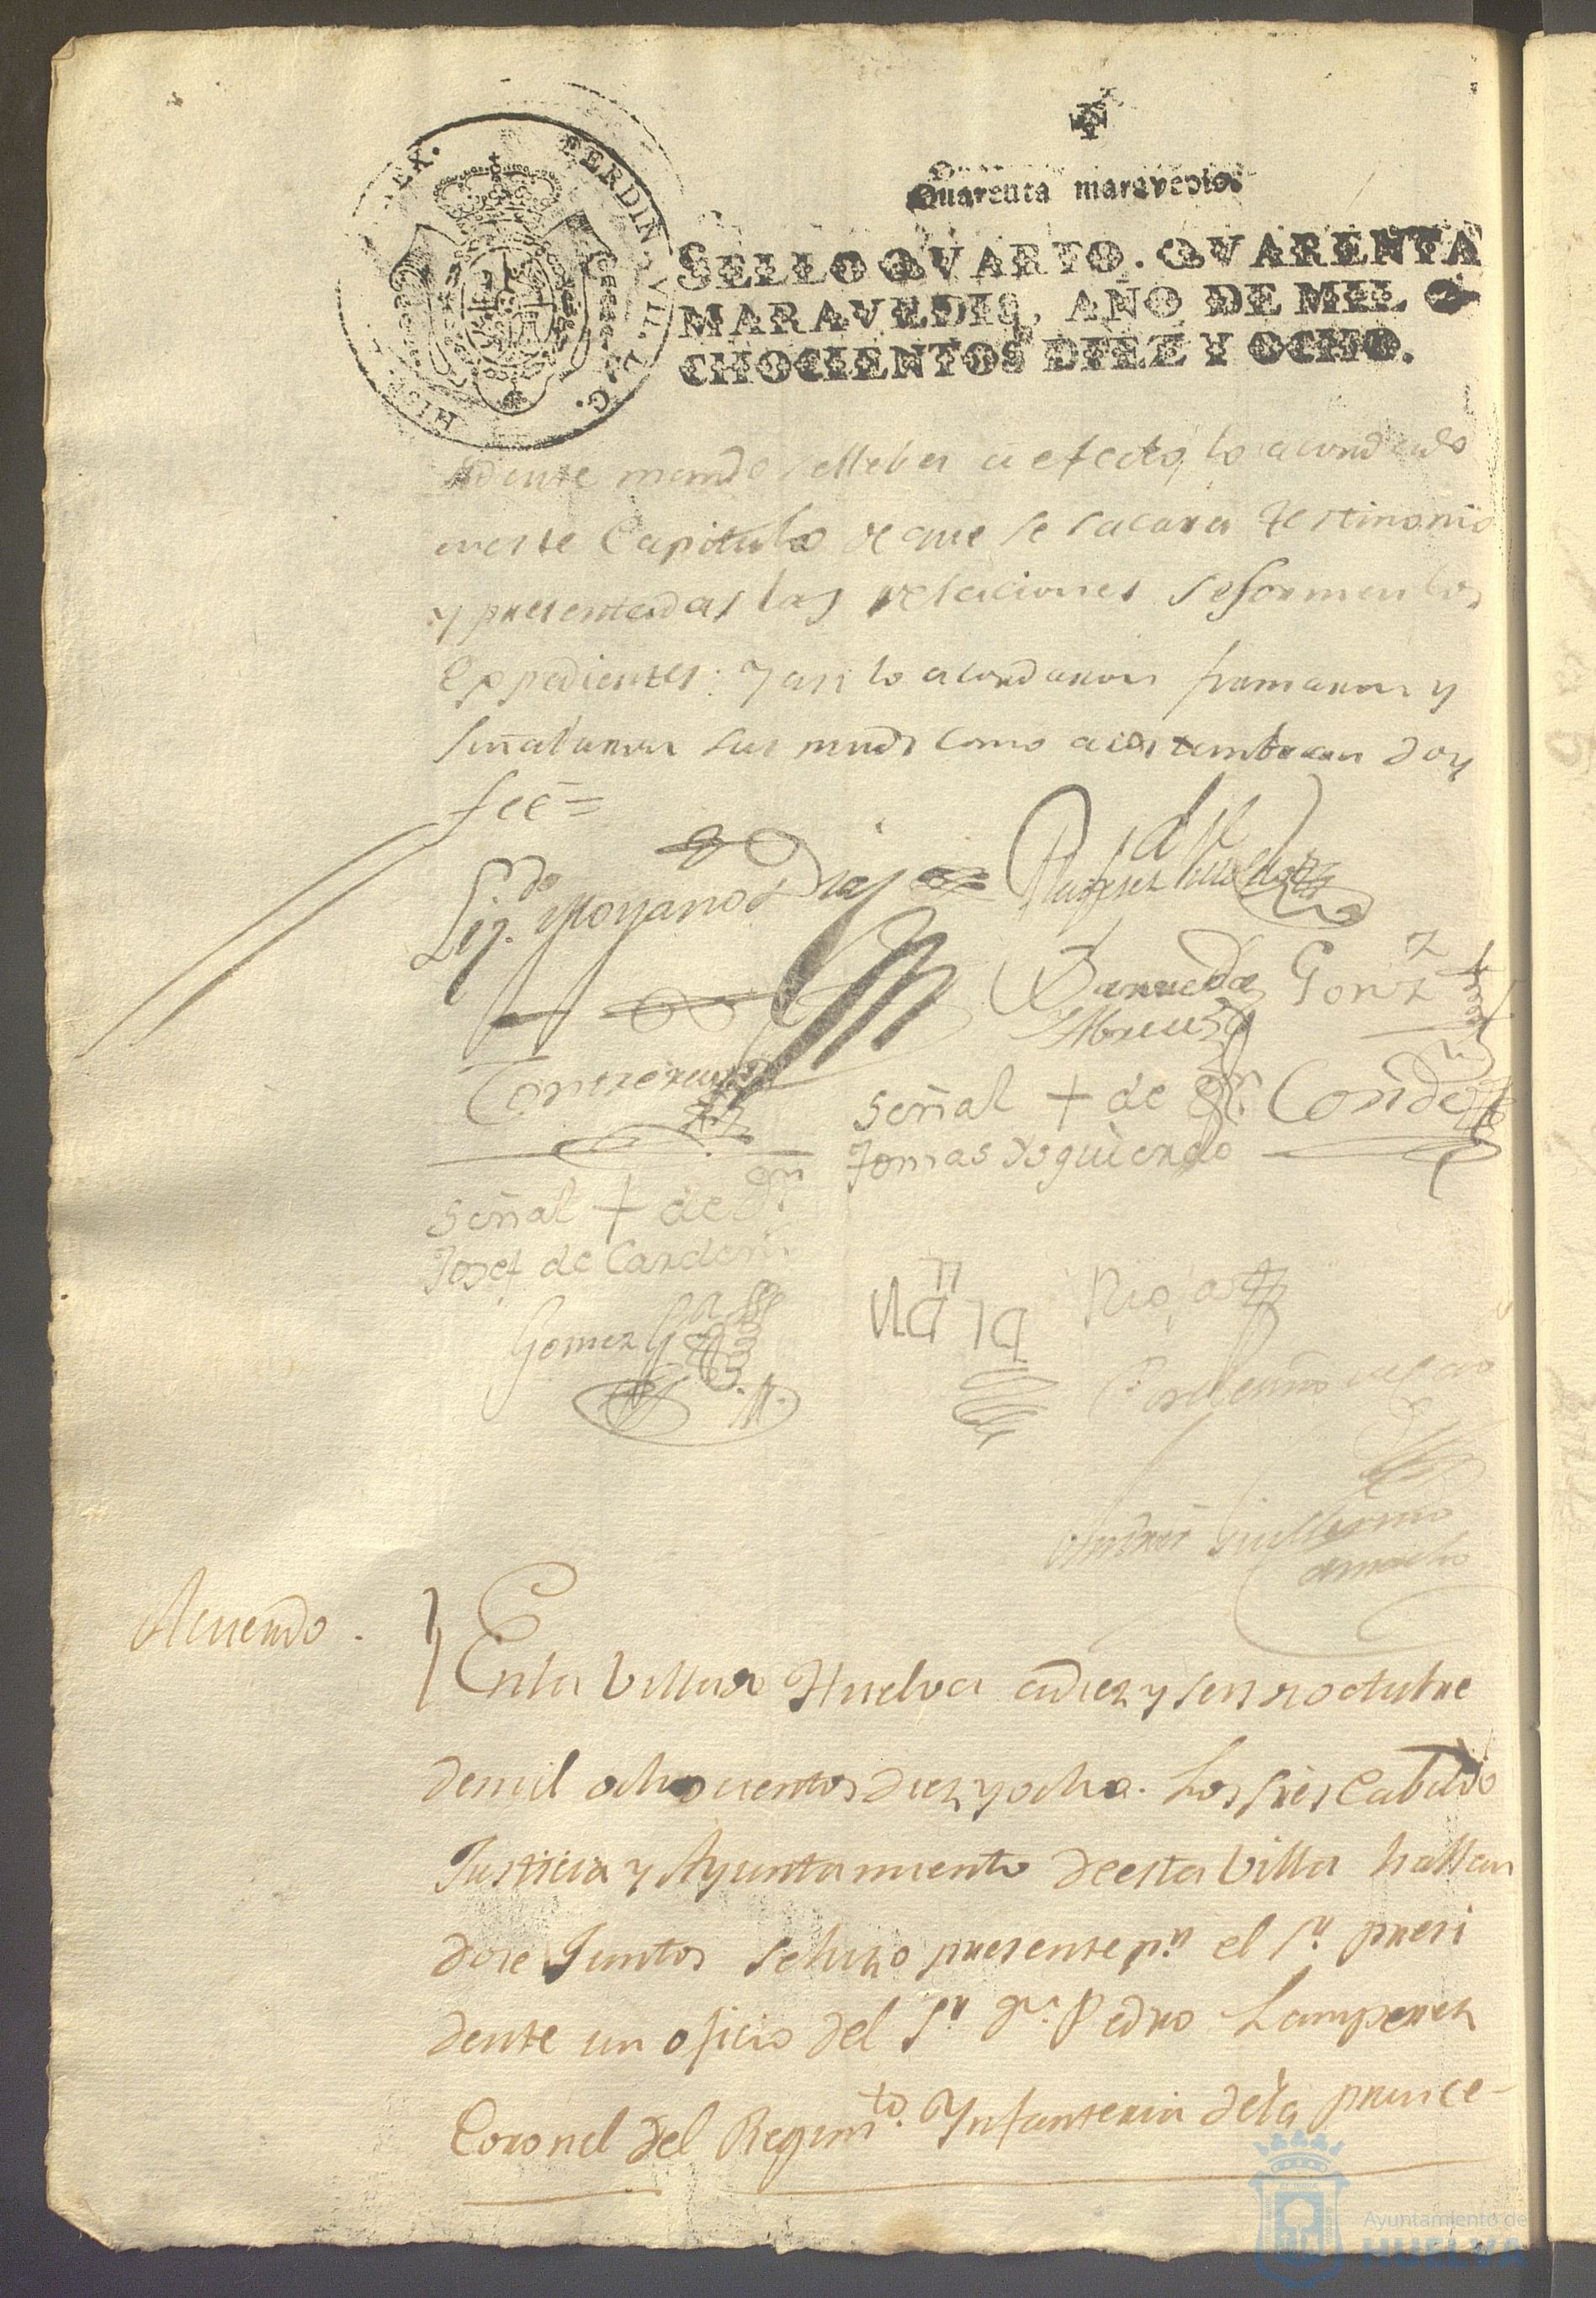 HISP. REX. FERDIN. VII. D. G.
Quarenta maravedis.
SELLO QVARTO. QVARENTA
MARAVEDIS, AÑO DE MIL O
CHOCIENTOS DIEZ Y OCHO.
mando llebar a efecto, lo acordado
eneste Capitulo de que se sacara testimonio
y presentadas las relaciones se formen los
Expedientes: y asi lo acordaron firmaron y
señalaron sus mrds como acostumbran doy
feé=
Liz.do Moyano Diaz
Barreda Gonz
Contreras
Señal + de Dn Conde
Tomas Ysquierdo
Señal + de Dn
Josef de Carden
Gomez
Rioja
Acuerdo.
Enla Villa de Huelva a diez y seis de octubre
demil ochocientos diez y ocho. Los Sres Cabildo
Justicia y Ayuntamiento deesta Villa hallan
dose Juntos se hizo presente pr el Sr presi
dente un oficio del Sr Dn Pedro Lamperez
Coronel del Regim.to Ynfanteria dela prince-
Ayuntamiento de
HUELVA